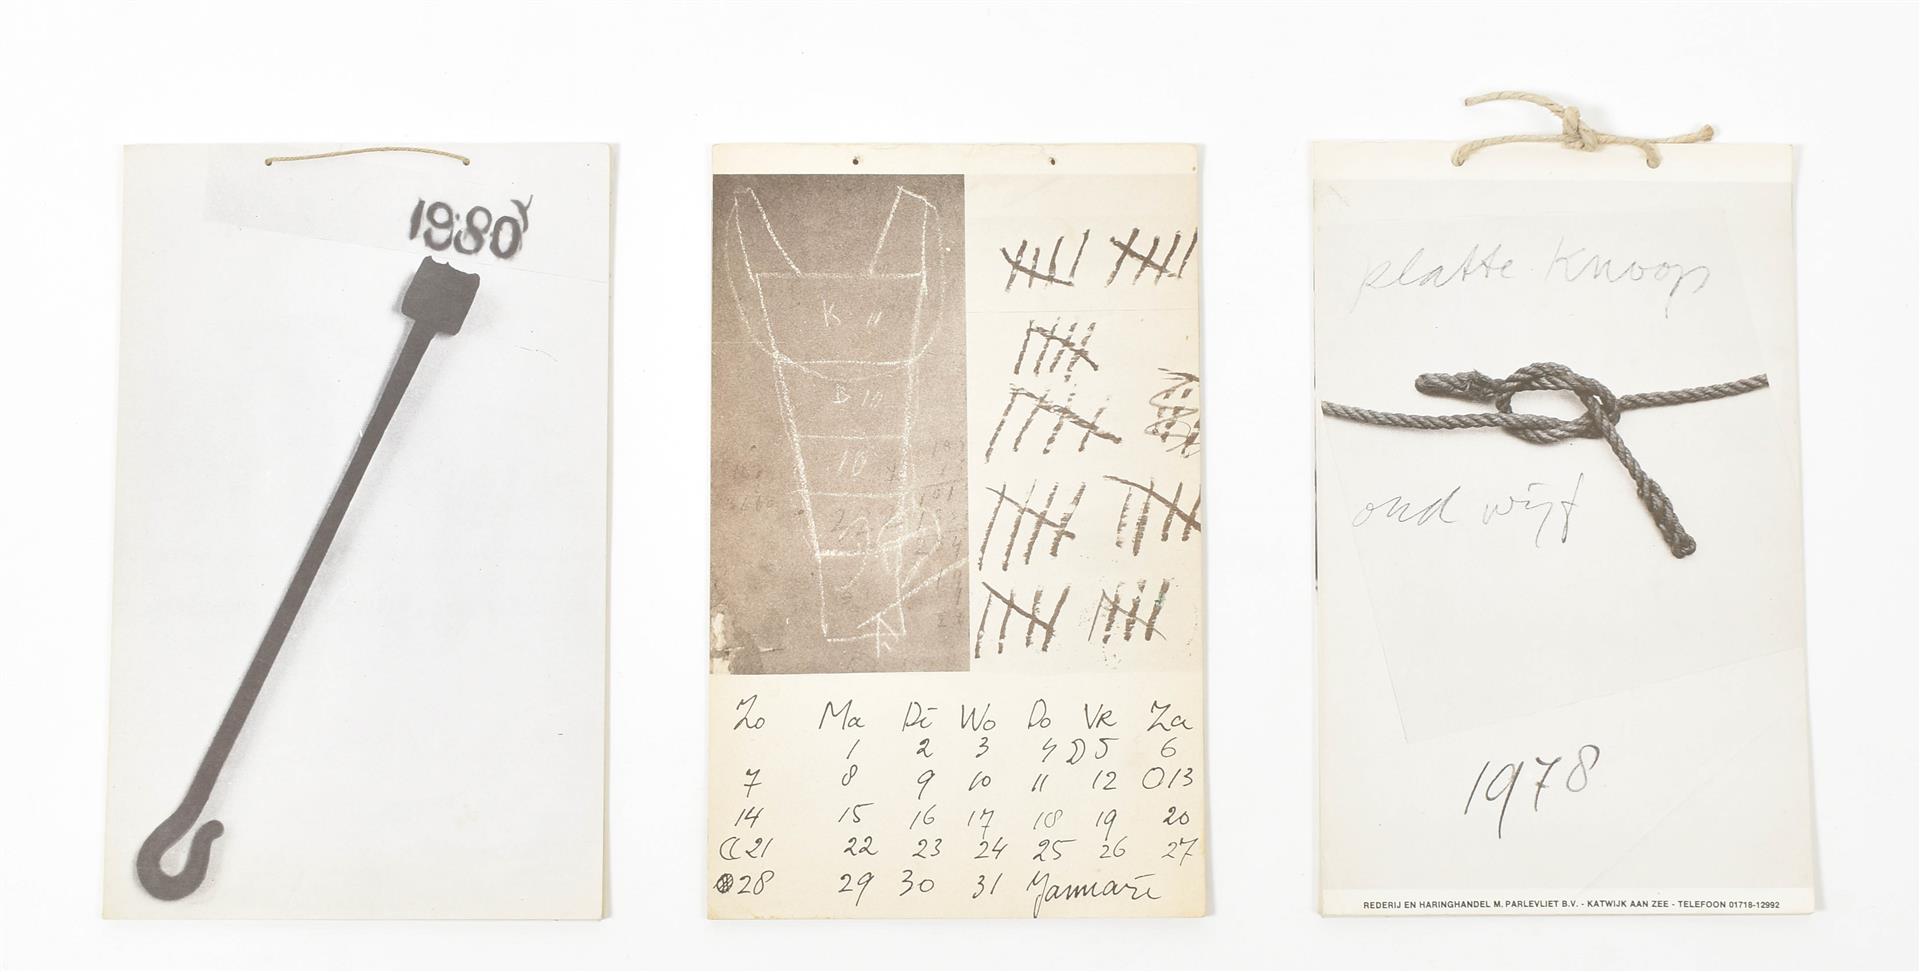 1980
K 11
D 10
10
Zo Ma Di Wo Do Vr Za
1 2 3 4 D 5 6
7 8 9 10 11 12 O 13
14 15 16 17 18 19 20
C 21 22 23 24 25 26 27
28 29 30 31 Januarie
platte Knoop
oud wijf
1978
REDERIJ EN HARINGHANDEL M. PARLEVLIET B.V. - KATWIJK AAN ZEE - TELEFOON 01718-12992